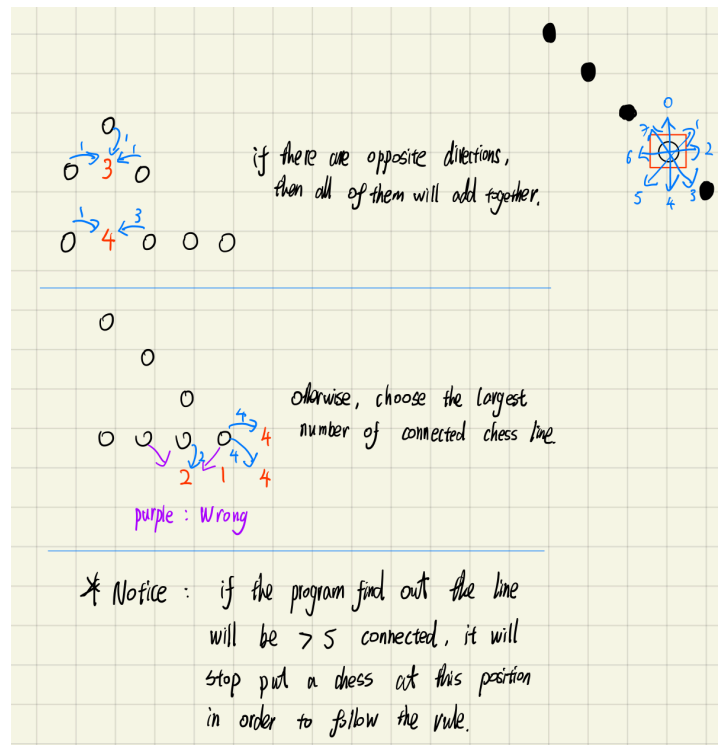 0
7 1
6 2
5 4 3
1 1
3
if there are opposite directions,
then all of them will add together.
1 3
4
otherwise, choose the largest
number of connected chess line.
4
4
2 4
2 1 4
purple : Wrong
* Notice : if the program find out the line
will be > 5 connected, it will
stop put a chess at this position
in order to follow the rule.